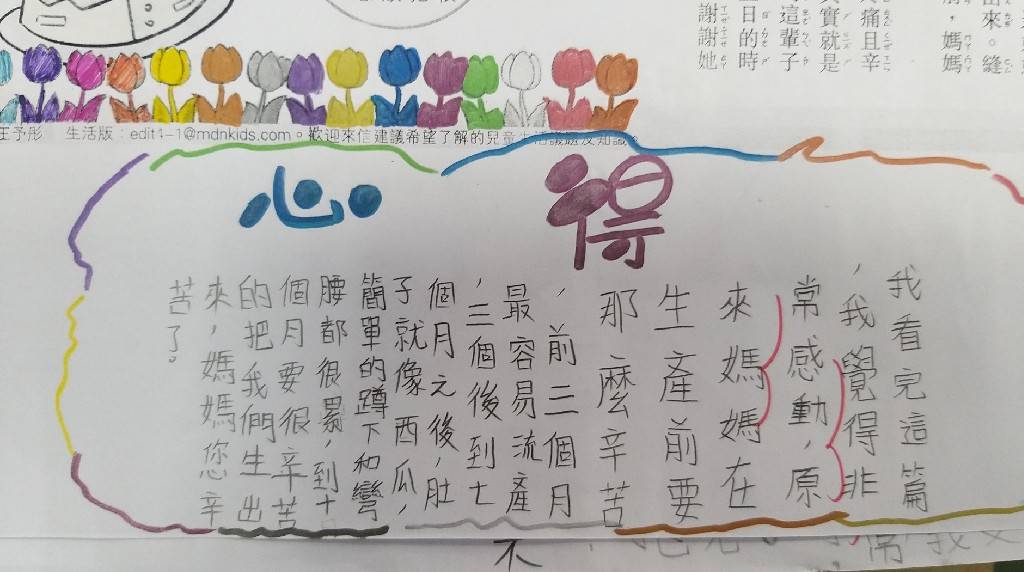 來。縫
，媽媽
痛且辛
實就是
這輩子
日的時
謝謝她
王予彤　生活版：edit1-1@mdnkids.com。歡迎來信建議希望了解的兒童生活議題及知識。
心得
我看完這篇
，我覺得非
常感動，原
來媽媽在
生產前要
那麼辛苦
，前三個月
最容易流產
，三個後到七
個月元後，肚
子就像西瓜，
簡單的蹲下和彎
腰都很累，到十
個月要很辛苦
的把我們生出
來，媽媽您辛
苦了。